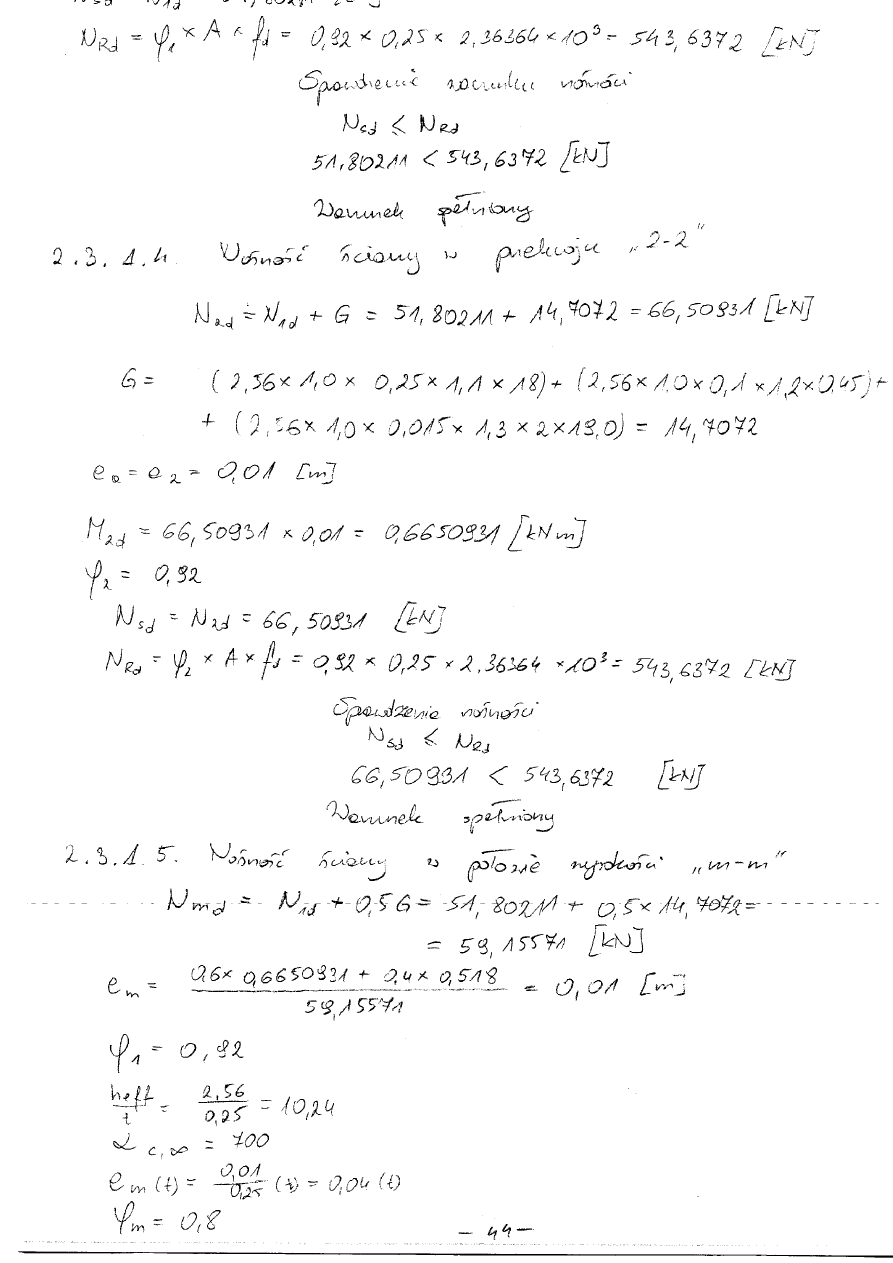 N_Rd = φ_1 × A × f_d = 0,92 × 0,25 × 2,36364 × 10³ = 543,6372 [kN]
Sprawdzenie warunku nośności
N_sd ≤ N_Rd
51,80211 < 543,6372 [kN]
Warunek spełniony
2.3.1.4. Nośność ściany w przekroju „2-2"
N_2d = N_1d + G = 51,80211 + 14,7072 = 66,50931 [kN]
G = (2,56 × 1,0 × 0,25 × 1,1 × 18) + (2,56 × 1,0 × 0,1 × 1,2 × 0,45) +
+ (2,56 × 1,0 × 0,015 × 1,3 × 2 × 19,0) = 14,7072
e_a = e_2 = 0,01 [m]
M_2d = 66,50931 × 0,01 = 0,6650931 [kNm]
φ_2 = 0,92
N_sd = N_2d = 66,50931 [kN]
N_Rd = φ_2 × A × f_d = 0,92 × 0,25 × 2,36364 × 10³ = 543,6372 [kN]
Sprawdzenie nośności
N_sd ≤ N_Rd
66,50931 < 543,6372 [kN]
Warunek spełniony
2.3.1.5. Nośność ściany w połowie wysokości „m-m"
N_md = N_1d + 0,5G = 51,80211 + 0,5 × 14,7072 =
= 59,15571 [kN]
e_m = (0,6 × 0,6650931 + 0,4 × 0,518) / 59,15571 = 0,01 [m]
φ_1 = 0,92
heff/t = 2,56/0,25 = 10,24
α_c,∞ = 700
e_m (t) = 0,01/0,25 (t) = 0,04 (t)
φ_m = 0,8
- 44 -